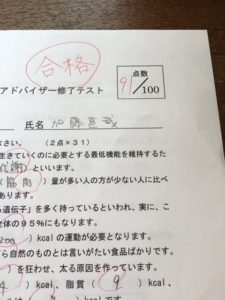 合格
点数
91/100
アドバイザー修了テスト
氏名 加藤
なさい。 (2点×31)
生きていくのに必要とする最低機能を維持するた
(代謝)といいます。
(筋肉)量が多い人の方が少ない人に比べ
あります。
う遺伝子」を多く持っているといわれ、実に、こ
全体の95%にもなります。
200 )kcalの運動が必要となります。
ら自然のものとは言いがたい食品ばかりです。
)を狂わせ、太る原因を作っています。
4 )kcal、脂質( 9 )
kcal